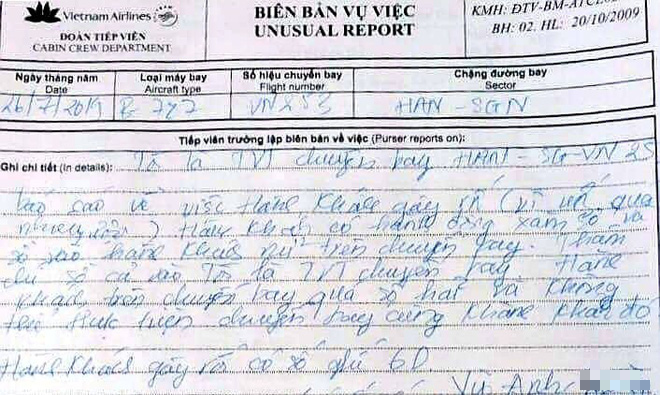 Vietnam Airlines
ĐOÀN TIẾP VIÊN
CABIN CREW DEPARTMENT
BIÊN BẢN VỤ VIỆC
UNUSUAL REPORT
KMH: ĐTV-BM-ATCL
BH: 02. HL: 20/10/2009
Ngày tháng năm
Date
Loại máy bay
Aircraft type
Số hiệu chuyến bay
Flight number
Chặng đường bay
Sector
26/7/2019 B 787 VN 253 HAN - SGN
Tiếp viên trưởng lập biên bản về việc (Purser reports on):
Ghi chi tiết (In details): Tôi là TVT chuyến bay HAN - SG - VN 25
báo cáo về việc Hành khách gây rối (vì uống quá
nhiều rượu) Hành khách có hành động xâm
sờ vào hành khách nữ trên chuyến bay. Thậm
chí sờ cả vào Tôi là TVT chuyến bay. Hành
khách trên chuyến bay quá sợ hãi và không
thể thực hiện chuyến bay cùng hành khách đó
Hành khách gây rối có số ghế 6D.
Vũ Anh